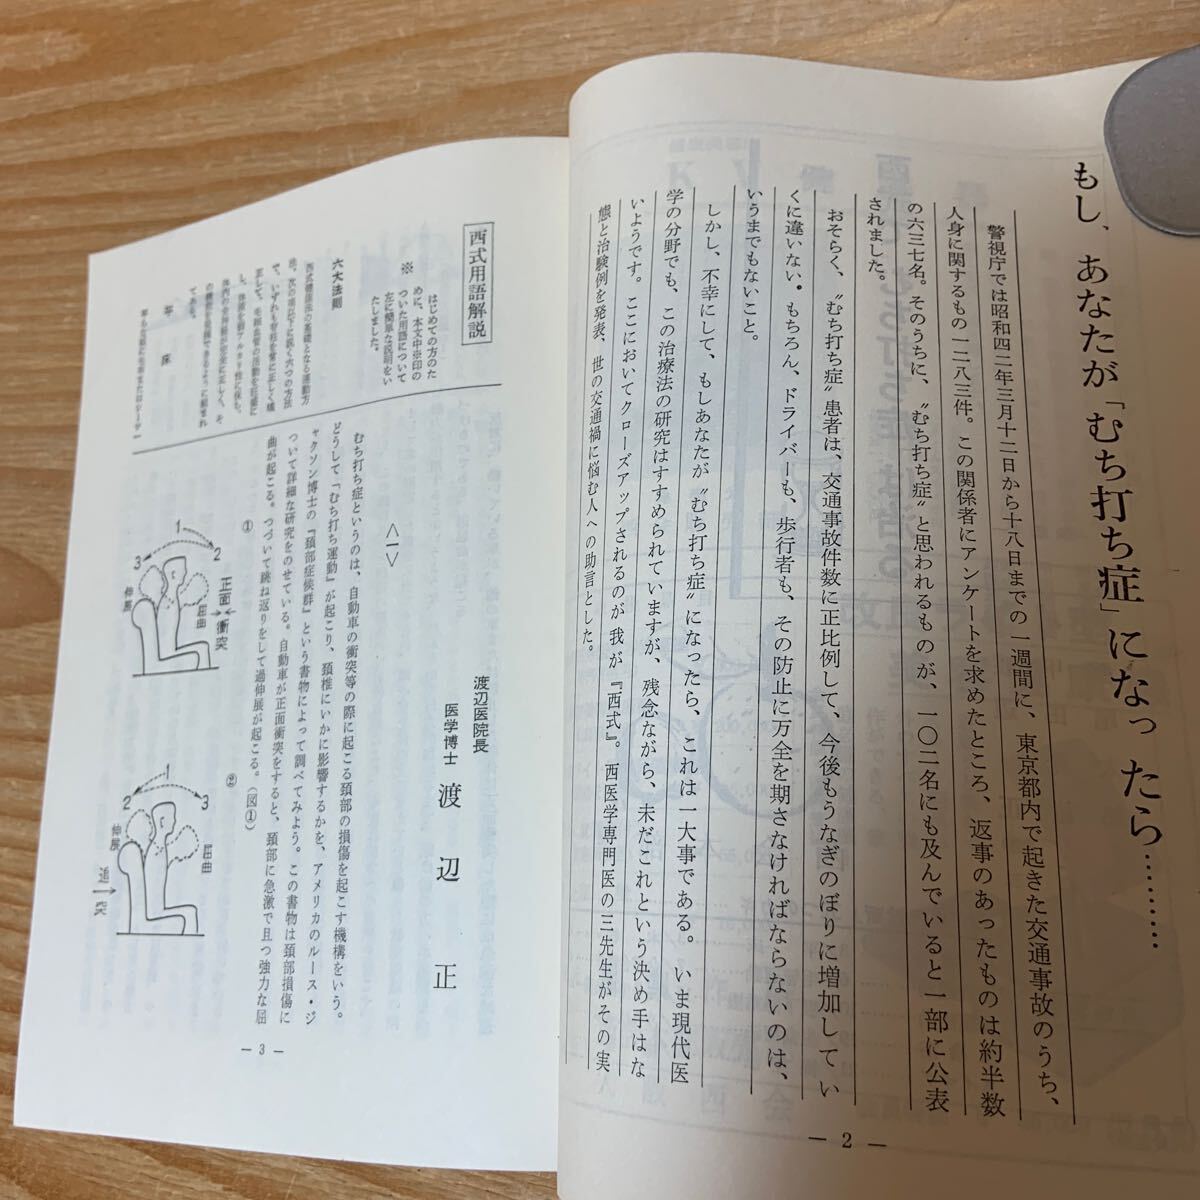 もし、あなたが「むち打ち症」になったら………
警視庁では昭和四二年三月十二日から十八日までの一週間に、東京都内で起きた交通事故のうち、
人身に関するもの一二八三件。この関係者にアンケートを求めたところ、返事のあったものは約半数
の六三七名。そのうちに、〝むち打ち症〟と思われるものが、一〇二名にも及んでいると一部に公表
されました。
おそらく、〝むち打ち症〟患者は、交通事故件数に正比例して、今後もうなぎのぼりに増加してい
くに違いない。もちろん、ドライバーも、歩行者も、その防止に万全を期さなければならないのは、
いうまでもないこと。
しかし、不幸にして、もしあなたが〝むち打ち症〟になったら、これは一大事である。いま現代医
学の分野でも、この治療法の研究はすすめられていますが、残念ながら、未だこれという決め手はな
いようです。ここにおいてクローズアップされるのが我が『西式』。西医学専門医の三先生がその実
態と治験例を発表、世の交通禍に悩む人への助言とした。
— 2 —
西式用語解説
はじめての方のた
めに、本文中※印の
ついた用語について
左に簡単な説明をい
たしました。
※
六大法則
西式健康法の基礎となる運動方
法。次の項以下に説く六つの方法
で、いずれも脊柱を常に正しく矯
正して、毛細血管の活動を旺盛に
し、体液を弱アルカリ性に保ち、
体内の全神経が完全に正しく、そ
の機能を発揮できるように組まれ
てある。
平床
〈一〉
渡辺医院長
医学博士 渡辺正
むち打ち症というのは、自動車の衝突等の際に起こる頚部の損傷を起こす機構をいう。
どうして「むち打ち運動」が起こり、頚椎にいかに影響するかを、アメリカのルース・ジ
ャクソン博士の『頚部症候群』という書物によって調べてみよう。この書物は頚部損傷に
ついて詳細な研究をのせている。自動車が正面衝突をすると、頚部に急激で且つ強力な屈
曲が起こる。つづいて跳ね返りをして過伸展が起こる。（図①）
①
1
2
3
正面衝突
屈曲
伸展
②
1
2
3
屈曲
伸展
追突
— 3 —